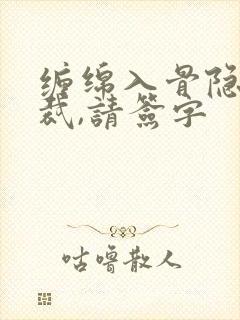 缠绵入骨隐
裁,請簽字
咕噜散人